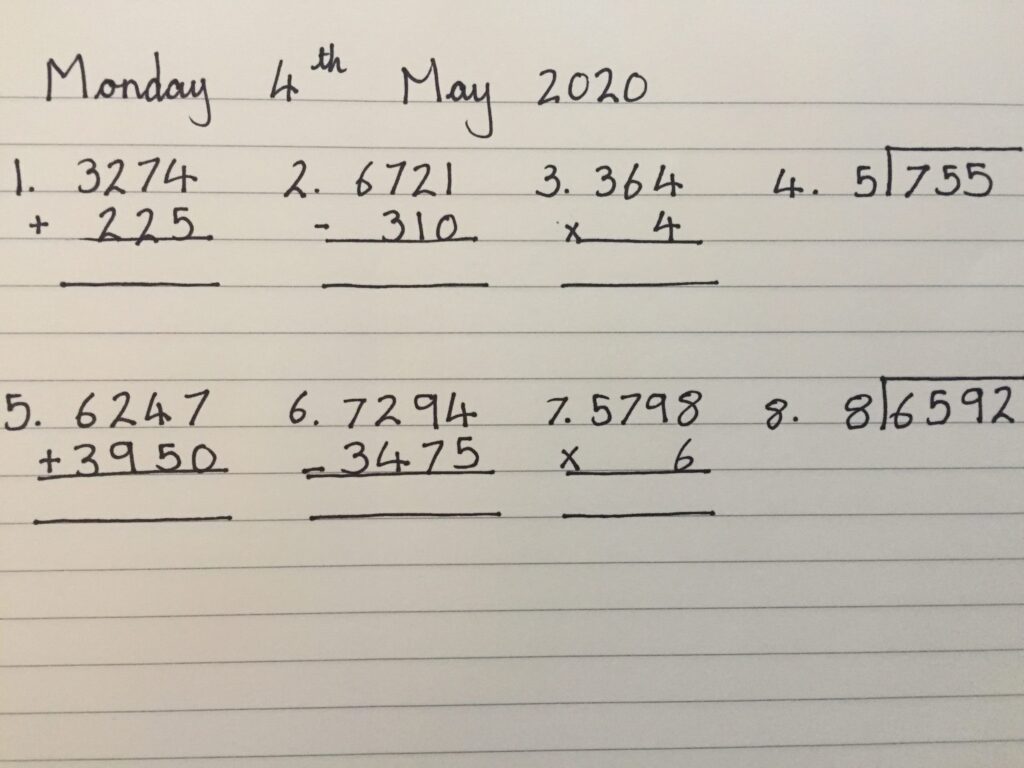 Monday 4th May 2020
1. 3274 2. 6721 3. 364 4. 5)755
+ 225 - 310 x 4
5. 6247 6. 7294 7. 5798 8. 8)6592
+3950 -3475 x 6